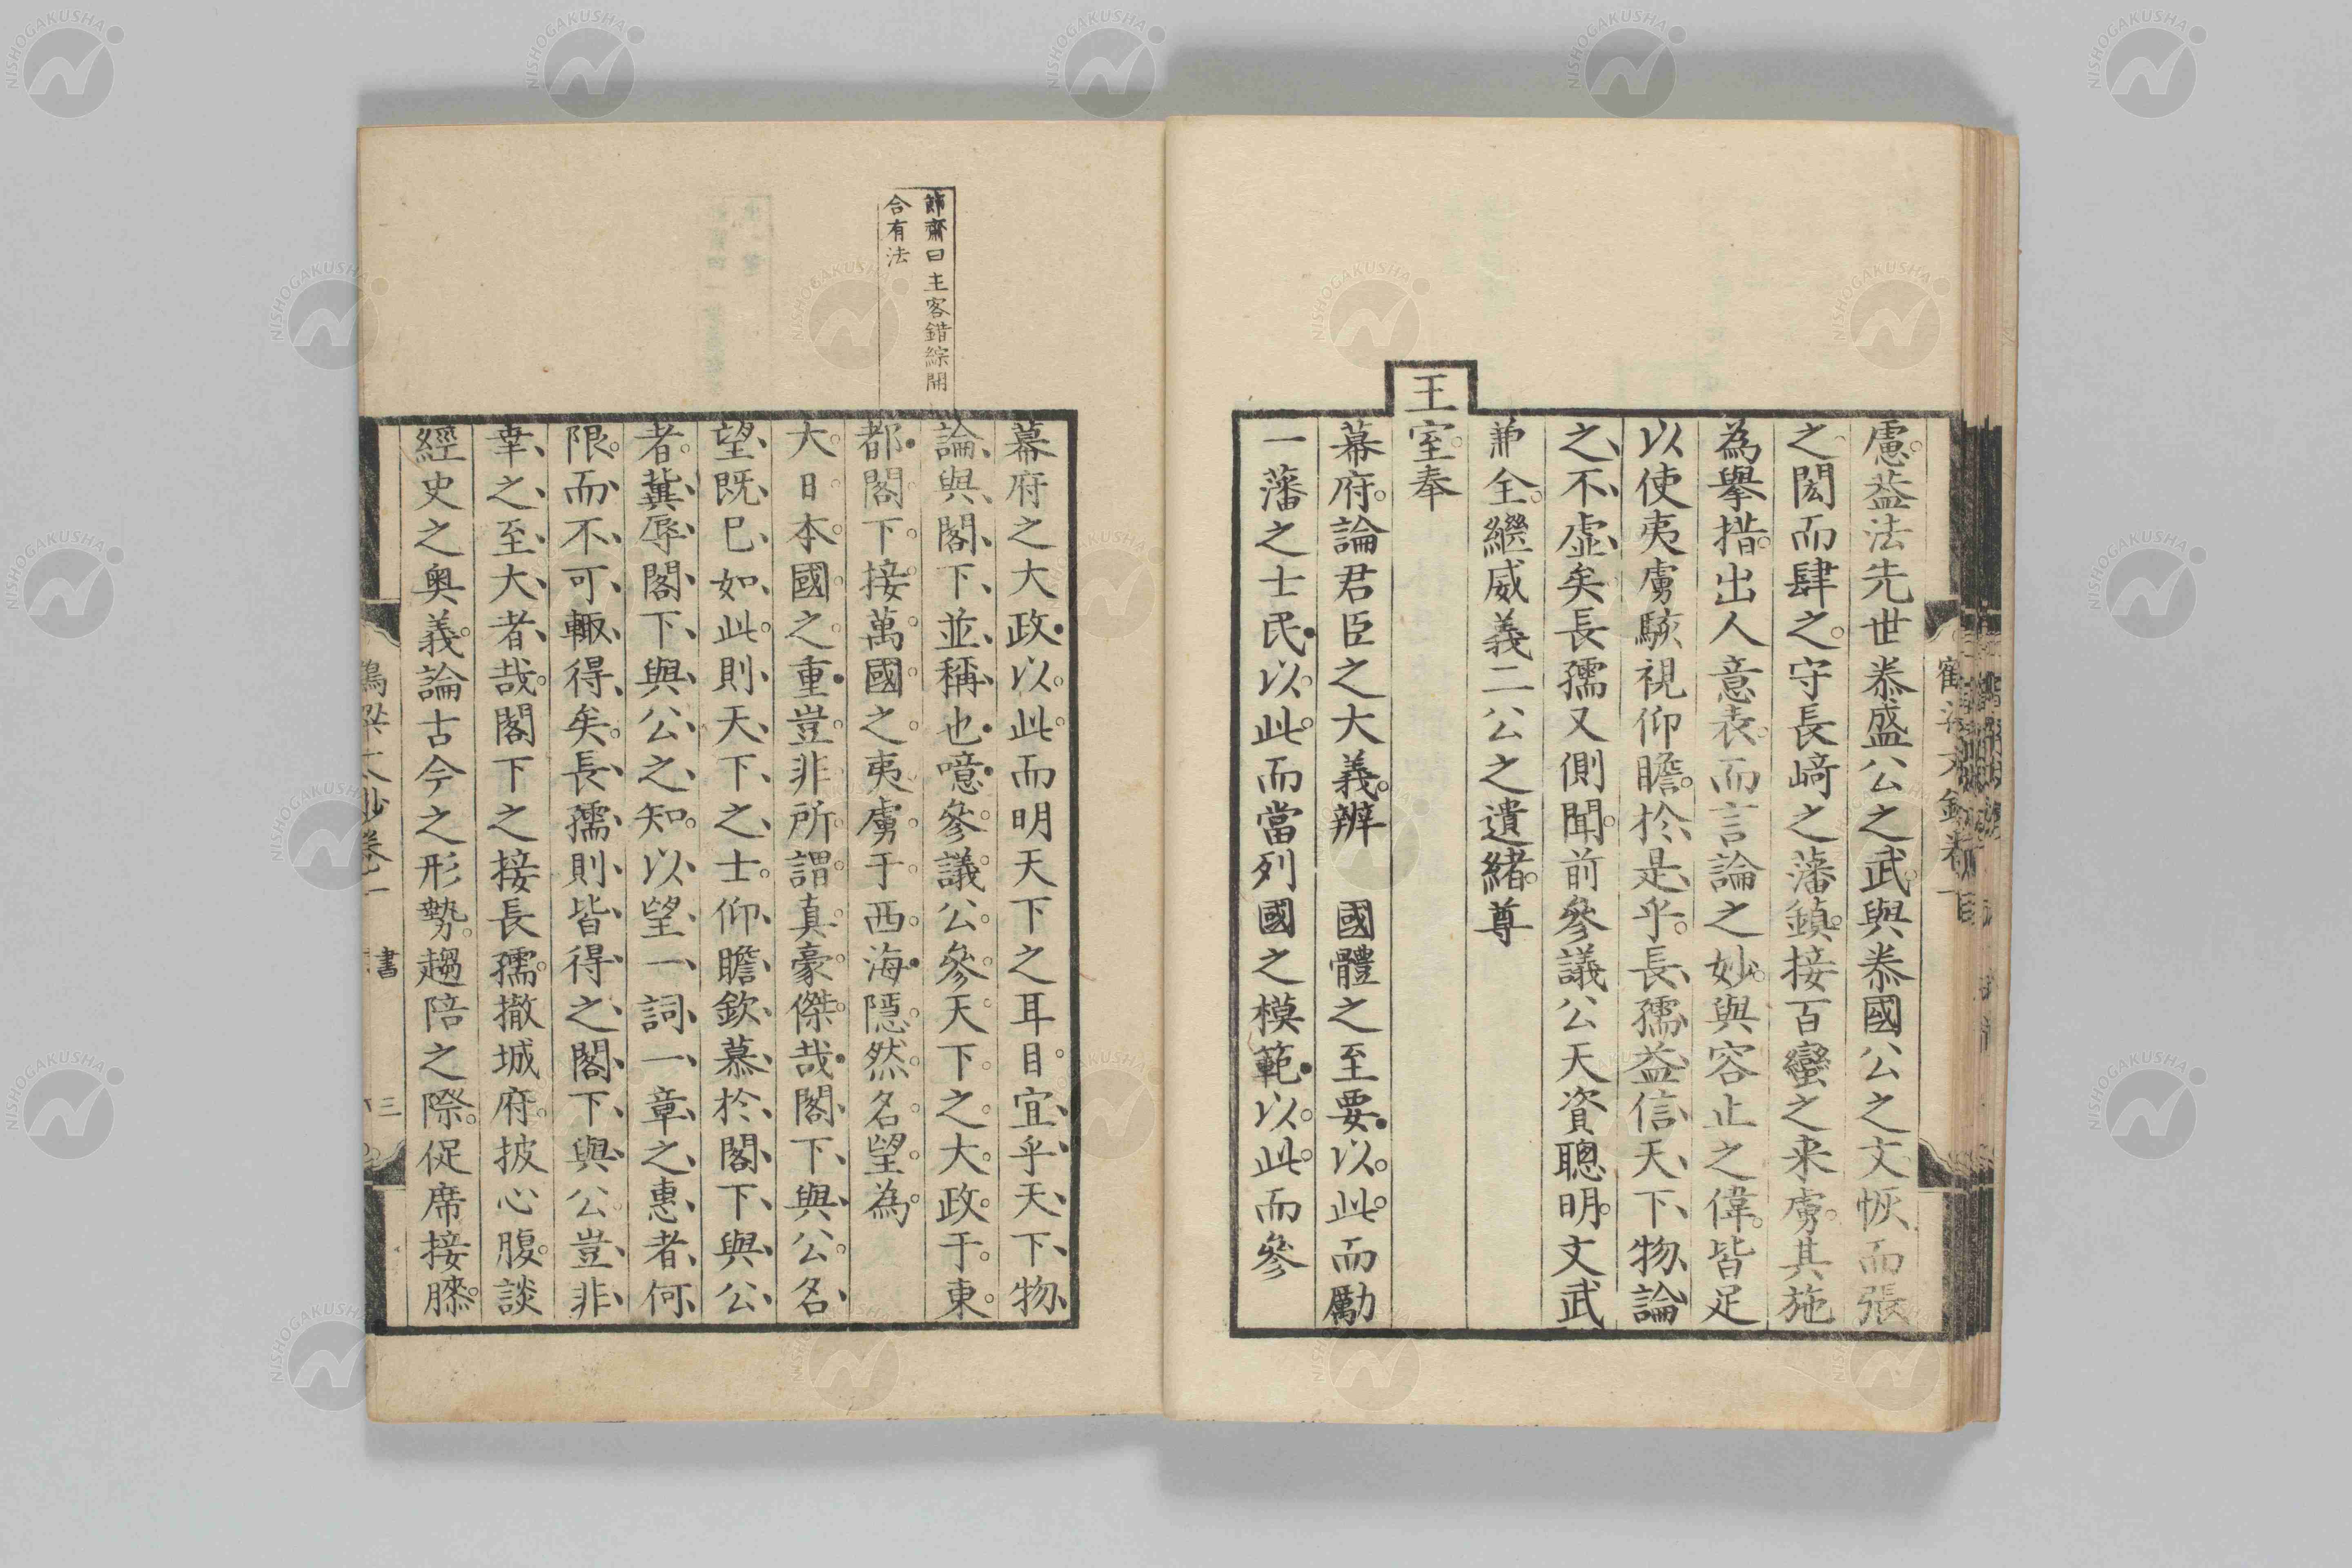 慮。葢法先世泰盛公之武。與泰國公之文。恢而張
之。閎而肆之。守長﨑之藩鎮。接百蠻之来虜。其施
為擧措。出人意表。而言論之妙。與容止之偉。皆足
以使夷虜駭視仰瞻。於是乎。長孺益信天下物論
之不虛矣。長孺又側聞。前參議公天資聰明。文武
兼全。繼威義二公之遺緒。尊
王室。奉
幕府。論君臣之大義。辨　國體之至要。以此而勵
一藩之士民。以此而當列國之模範。以此而參
幕府之大政。以此而明天下之耳目。宜乎天下物
論與閣下並稱也。噫參議公。參天下之大政于東
都。閣下接萬國之夷虜于西海。隱然名望為
大日本國之重。豈非所謂真豪傑哉。閣下與公名
望既已如此。則天下之士。仰瞻欽慕於閣下與公
者。冀辱閣下與公之知。以望一詞一章之惠者何
限。而不可輙得矣。長孺則皆得之閣下與公。豈非
幸之至大者哉。閣下之接長孺。撤城府。披心腹。談
經史之奥義。論古今之形勢。趨陪之際。促席接膝。
節齋曰主客錯綜開
合有法
書
三
NISHOGAKUSHA